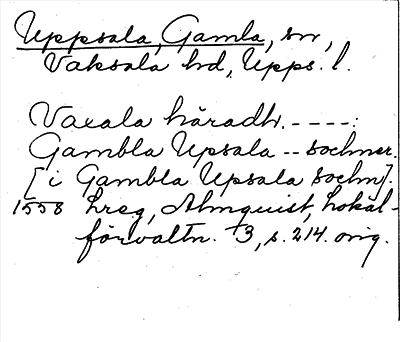 Uppsala, Gamla, sn,
Vaksala hd, Upps. l.
Vaxala häradh. ----:
Gambla Upsala -- sochner.
[i Gambla Upsala sochn].
1558 hreg, Almquist, Lokal-
förvaltn. +3, s. 214. orig.